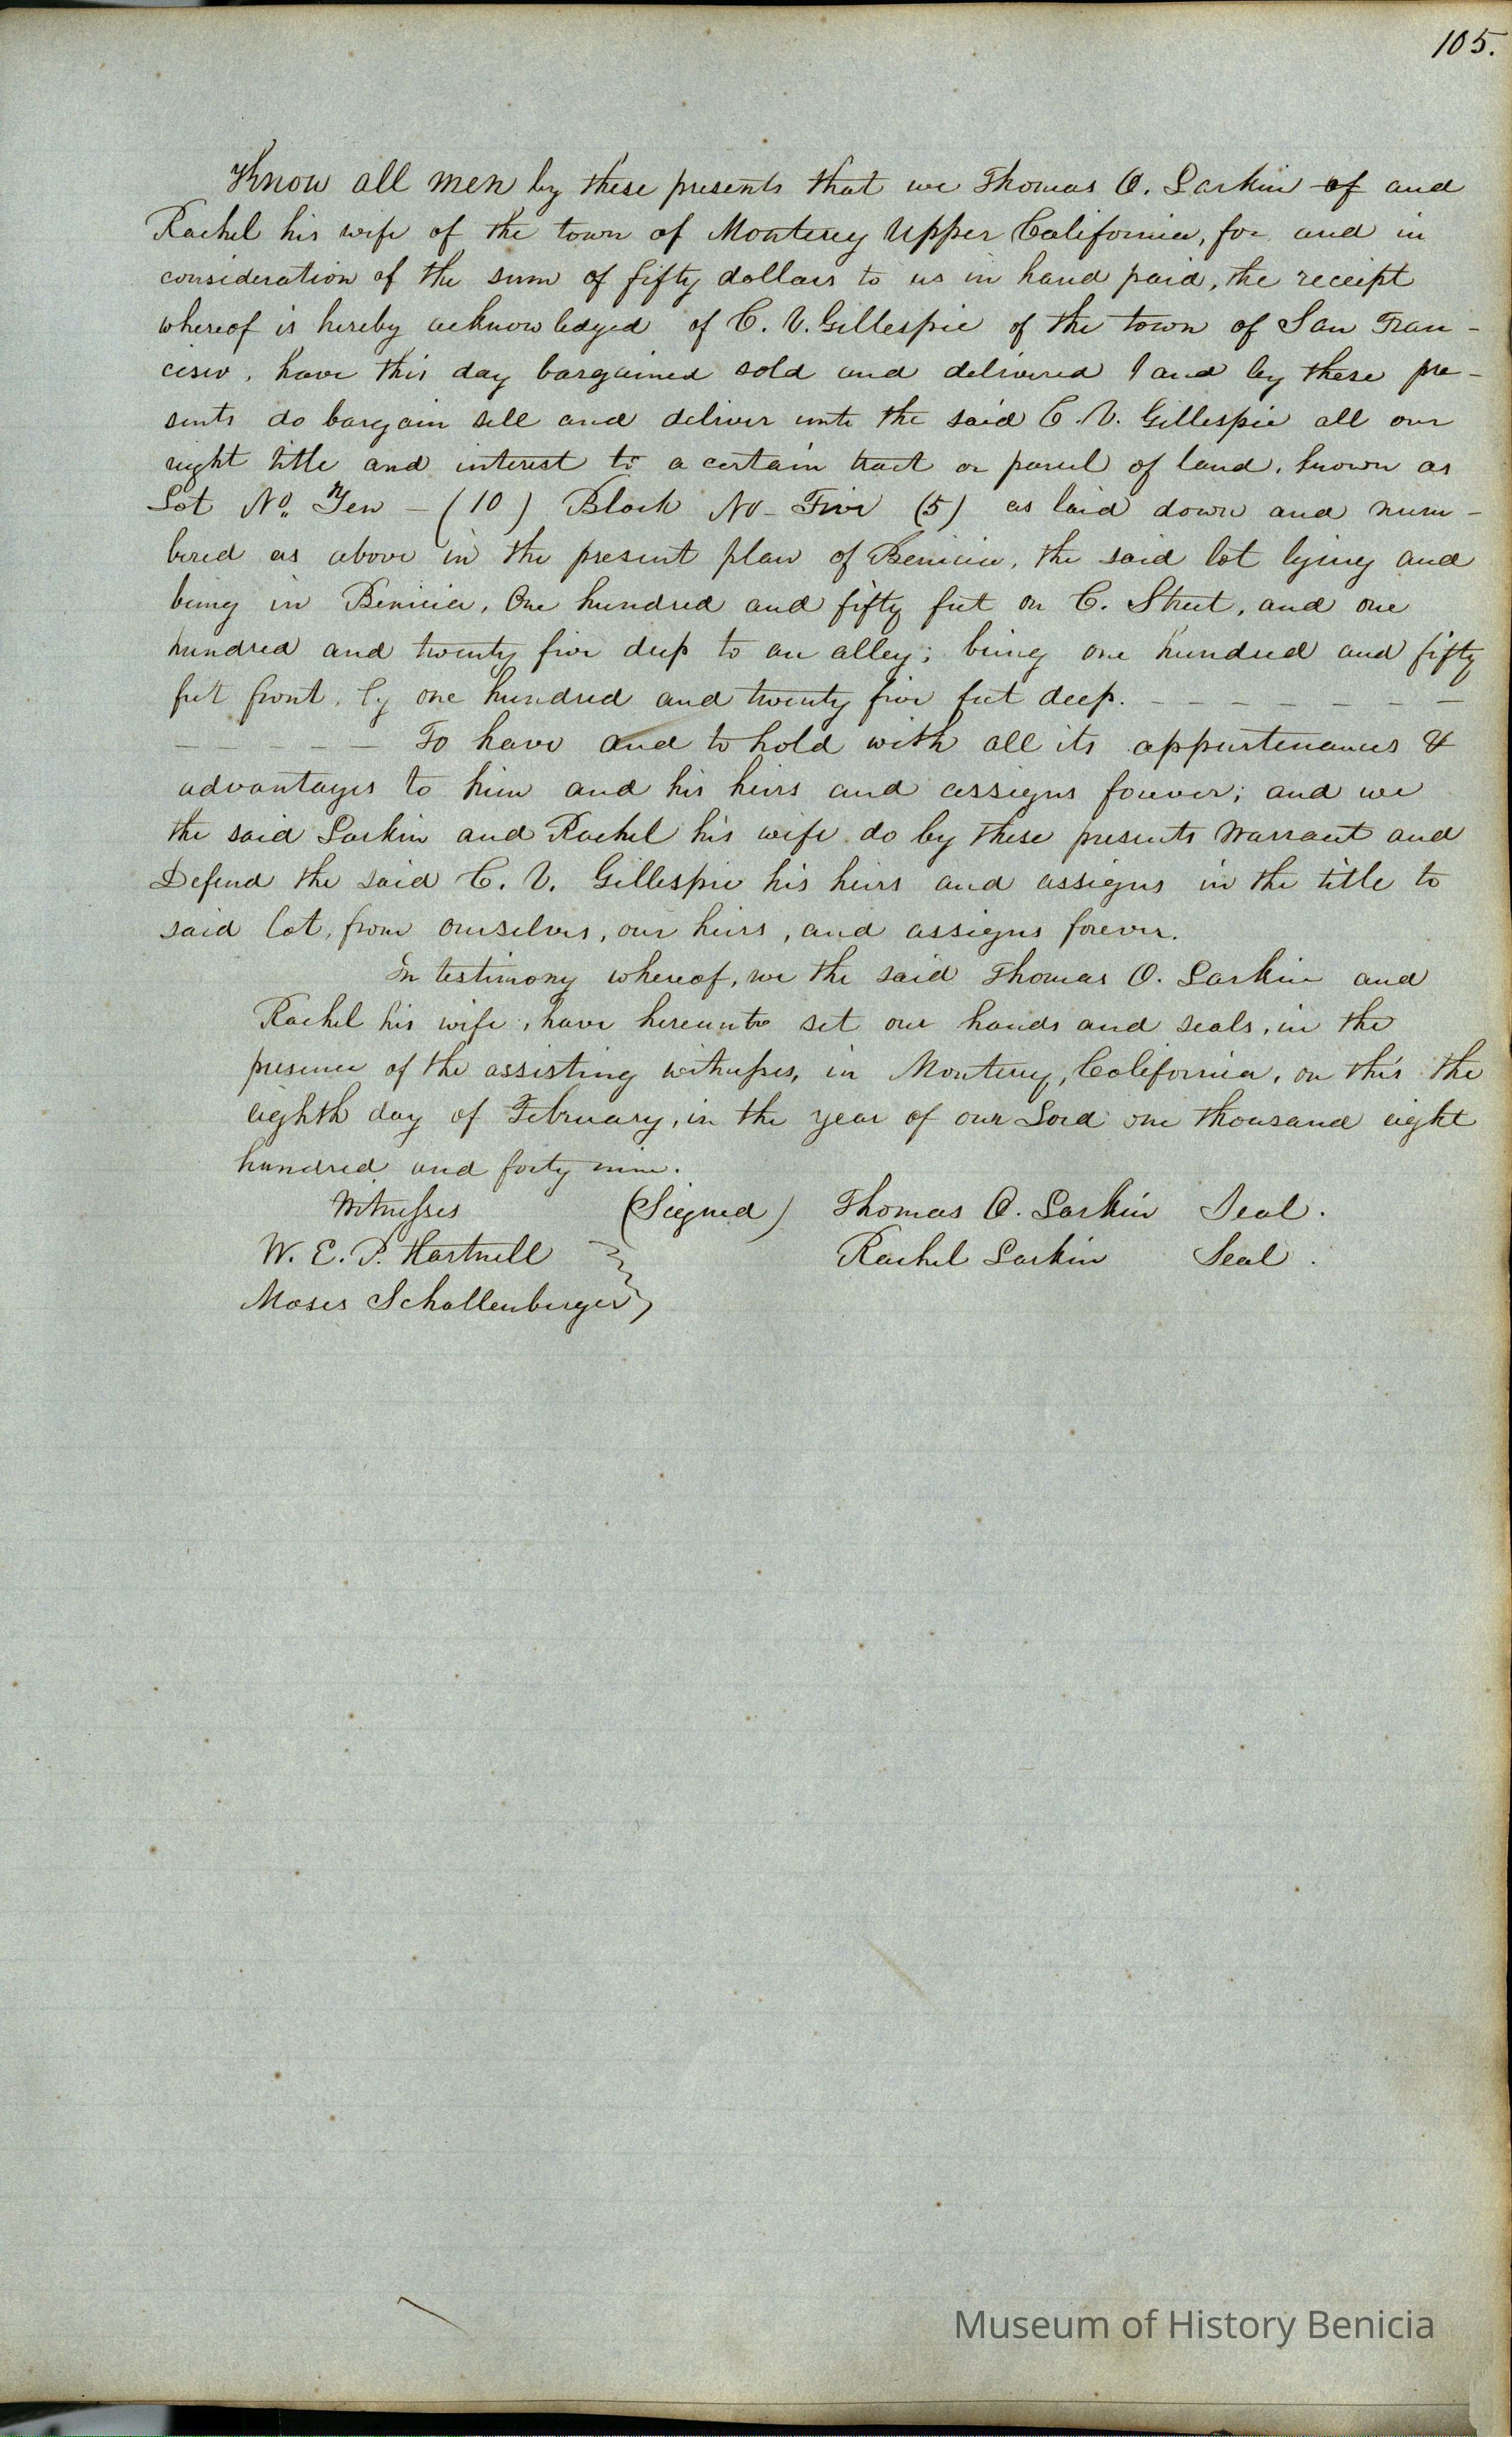 105.
Know all men by these presents that we Thomas O. Larkin of and
Rachel his wife of the town of Monterey Upper California, for and in
consideration of the sum of fifty dollars to us in hand paid, the receipt
whereof is hereby acknowledged of C. V. Gillespie of the town of San Fran-
cisco, have this day bargained sold and delivered / and by these pre-
sents do bargain sell and deliver unto the said C. V. Gillespie all our
right title and interest to a certain tract or parcel of land, known as
Lot No. Ten - (10) Block No - Five (5) as laid down and num-
bered as above in the present plan of Benicia, the said lot lying and
being in Benicia, One hundred and fifty feet on C. Street, and one
hundred and twenty five deep to an alley; being one hundred and fifty
feet front, by one hundred and twenty five feet deep. - - - - - - - -
- - - - - - To have and to hold with all its appurtenances &
advantages to him and his heirs and assigns forever; and we
the said Larkin and Rachel his wife do by these presents Warrant and
Defend the said C. V. Gillespie his heirs and assigns in the title to
said lot, from ourselves, our heirs, and assigns forever.
In testimony whereof, we the said Thomas O. Larkin and
Rachel his wife, have hereunto set our hands and seals, in the
presence of the assisting witnesses, in Monterey, California, on this the
eighth day of February, in the year of our Lord one thousand eight
hundred and forty nine.
Witnesses (Signed) Thomas O. Larkin Seal.
W. E. P. Hartnell Rachel Larkin Seal.
Moses Schallenberger
Museum of History Benicia